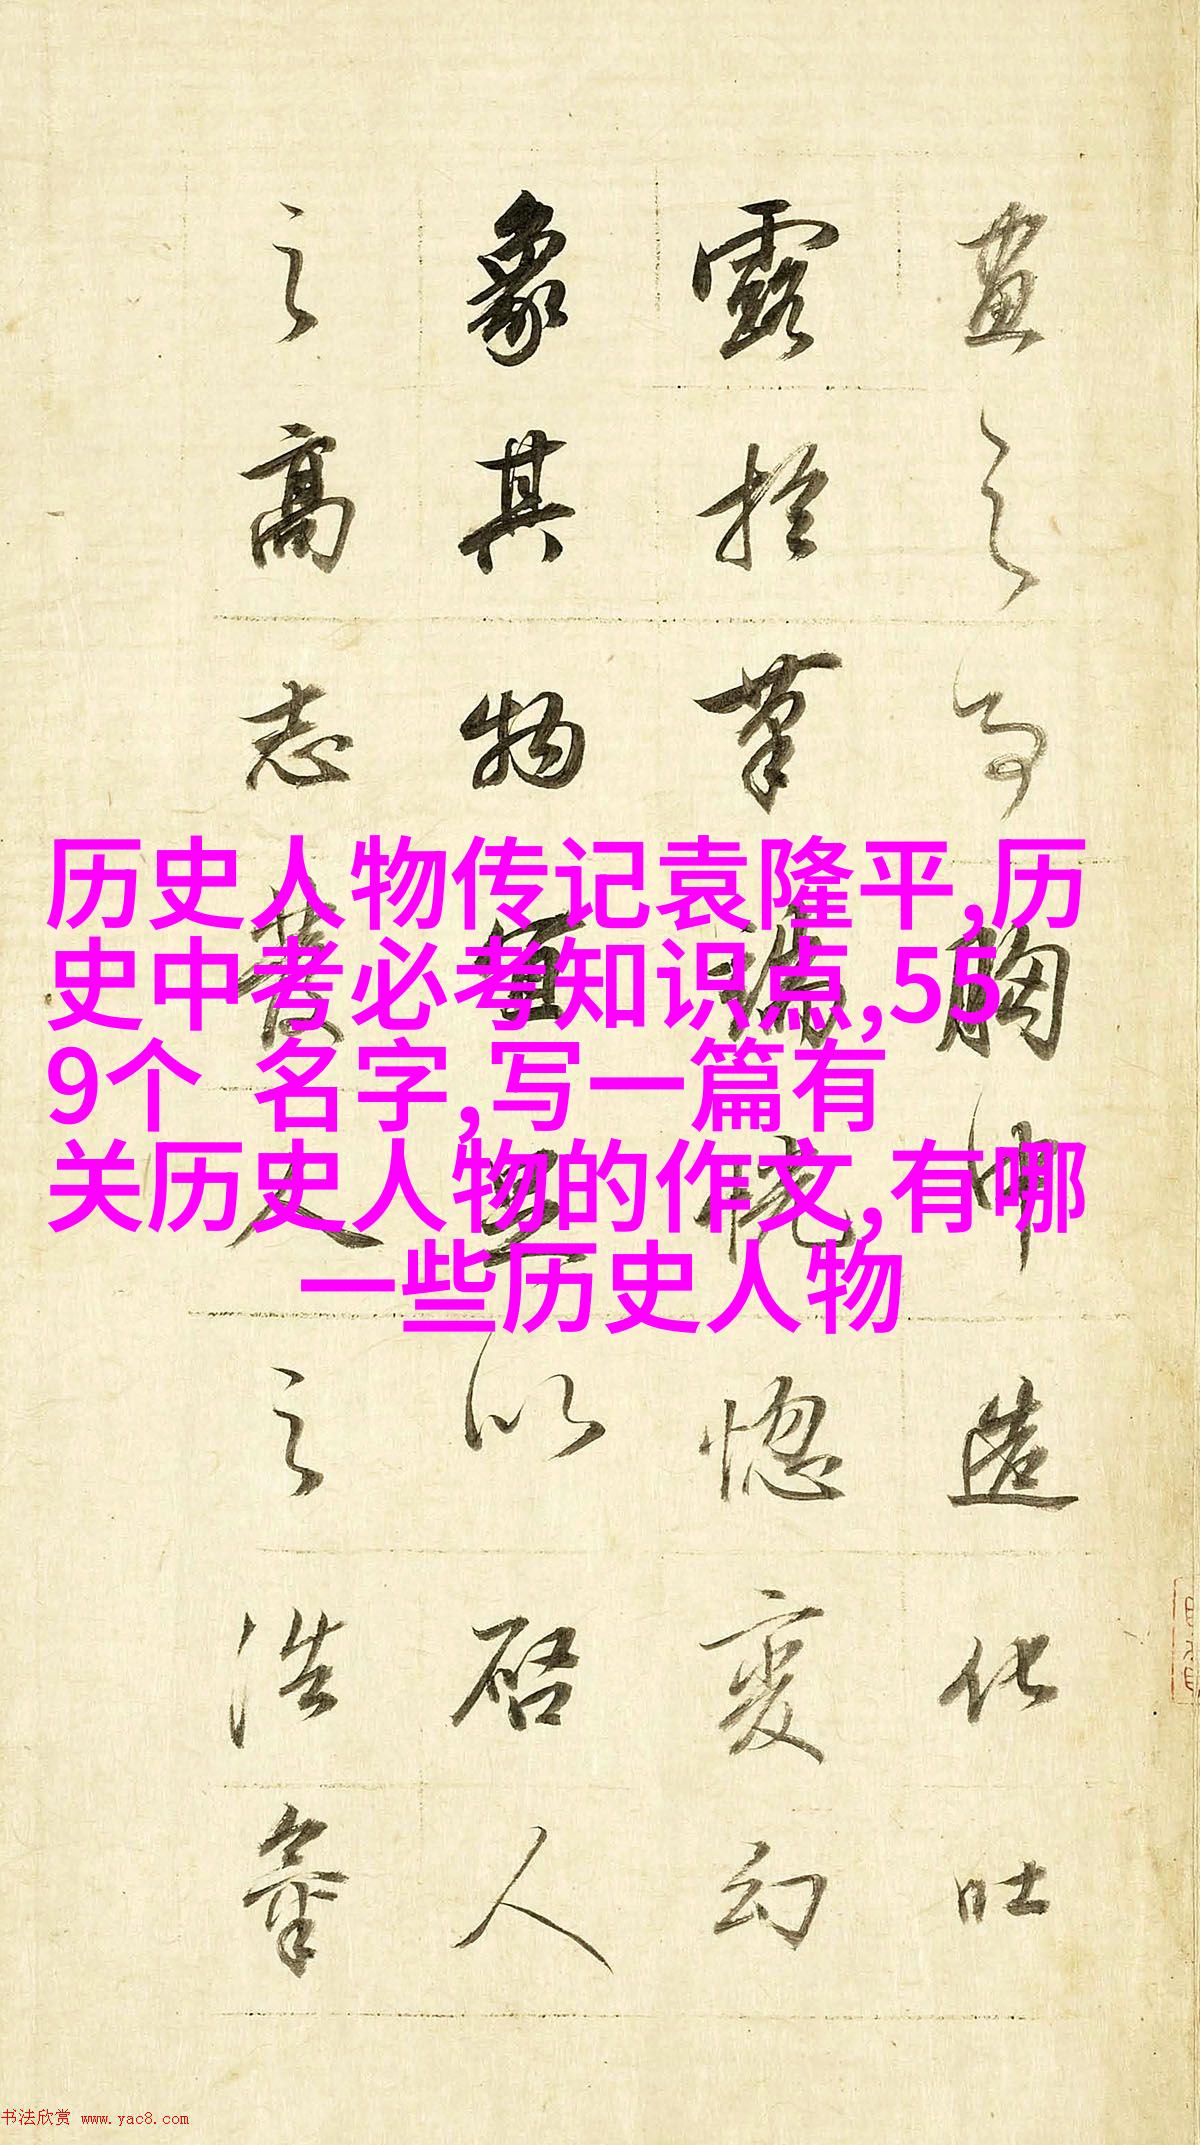 畫之為胸中造化吐
露於筆端恍惚變幻
象其物宜以啓人
之高志發人之浩氣
历史人物传记袁隆平,历
史中考必考知识点,55
9个 名字,写一篇有
关历史人物的作文,有哪
一些历史人物
书法欣赏 www.yac8.com